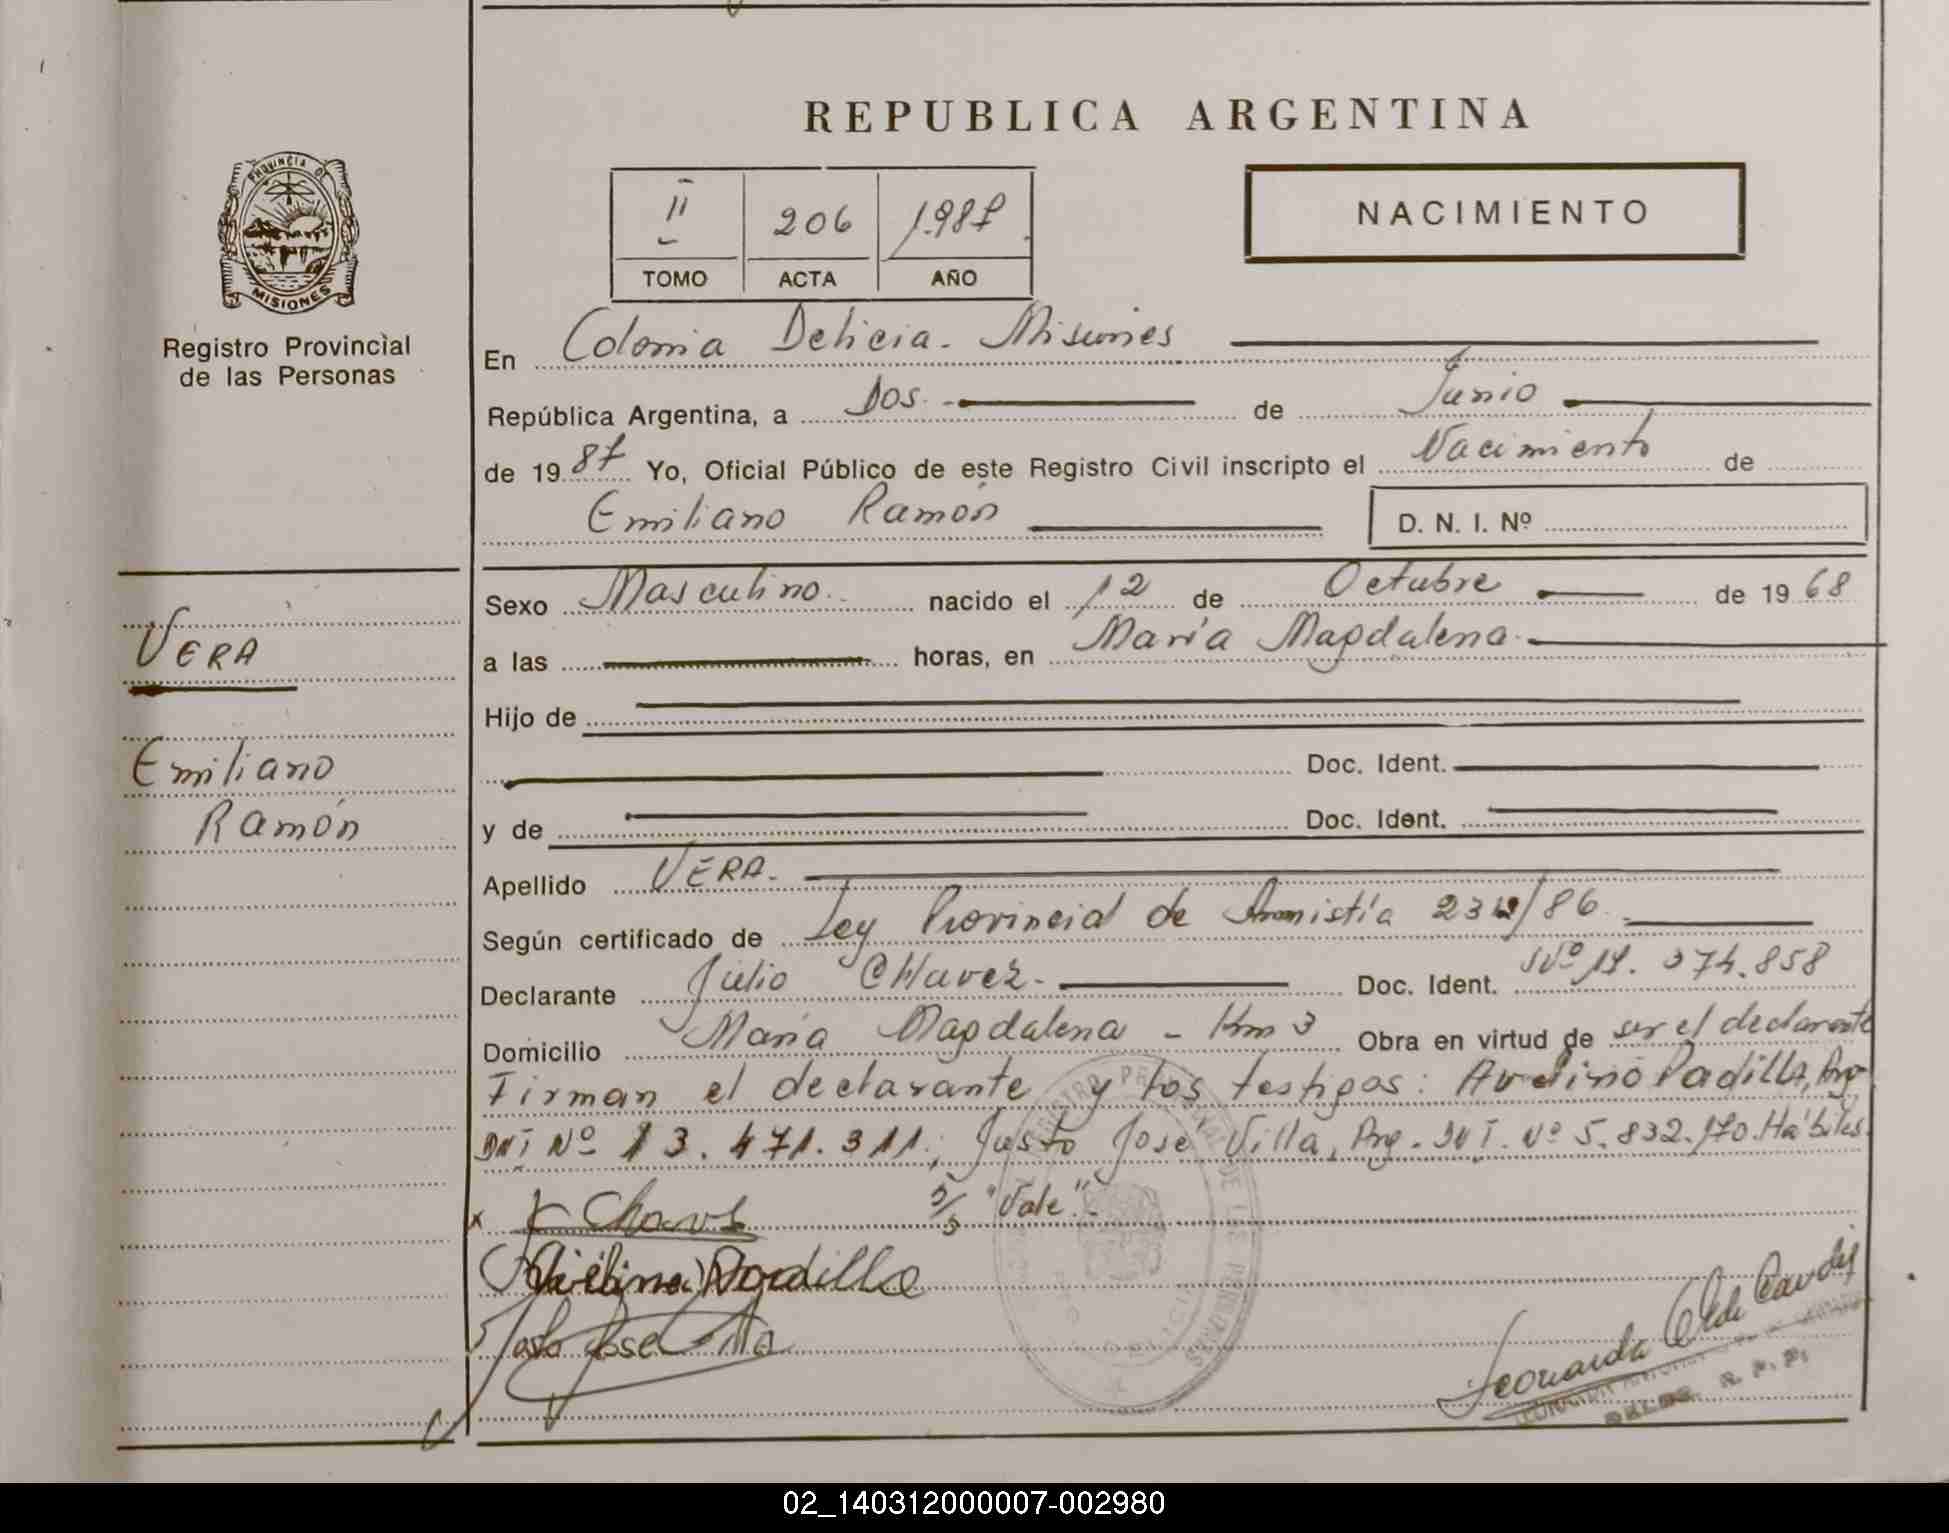 REPUBLICA ARGENTINA
PROVINCIA DE
MISIONES
Registro Provincial
de las Personas
II 206 1.987
TOMO ACTA AÑO
NACIMIENTO
En Colonia Delicia - Misiones
República Argentina, a Dos. de Junio
de 19 87 Yo, Oficial Público de este Registro Civil inscripto el Nacimiento de
Emiliano Ramón D. N. I. Nº
VERA
Emiliano
Ramón
Sexo Masculino nacido el 12 de Octubre de 19 68
a las horas, en María Magdalena
Hijo de
Doc. Ident.
y de Doc. Ident.
Apellido VERA.
Según certificado de Ley Provincial de Amnistía /86
Declarante Julio CHavez Doc. Ident. Nº 374.858
Domicilio María Magdalena - Km 3 Obra en virtud de ser el declarante
Firman el declarante y los testigos: Avelino Padilla, Arg
DNI Nº 13.471.311; Justo José Villa, Arg. DNI. Nº 5.832.170. Hábiles
"Vale".-
Chavez
Avelino Padilla
Justo Jose Villa
Leonarda
02_140312000007-002980